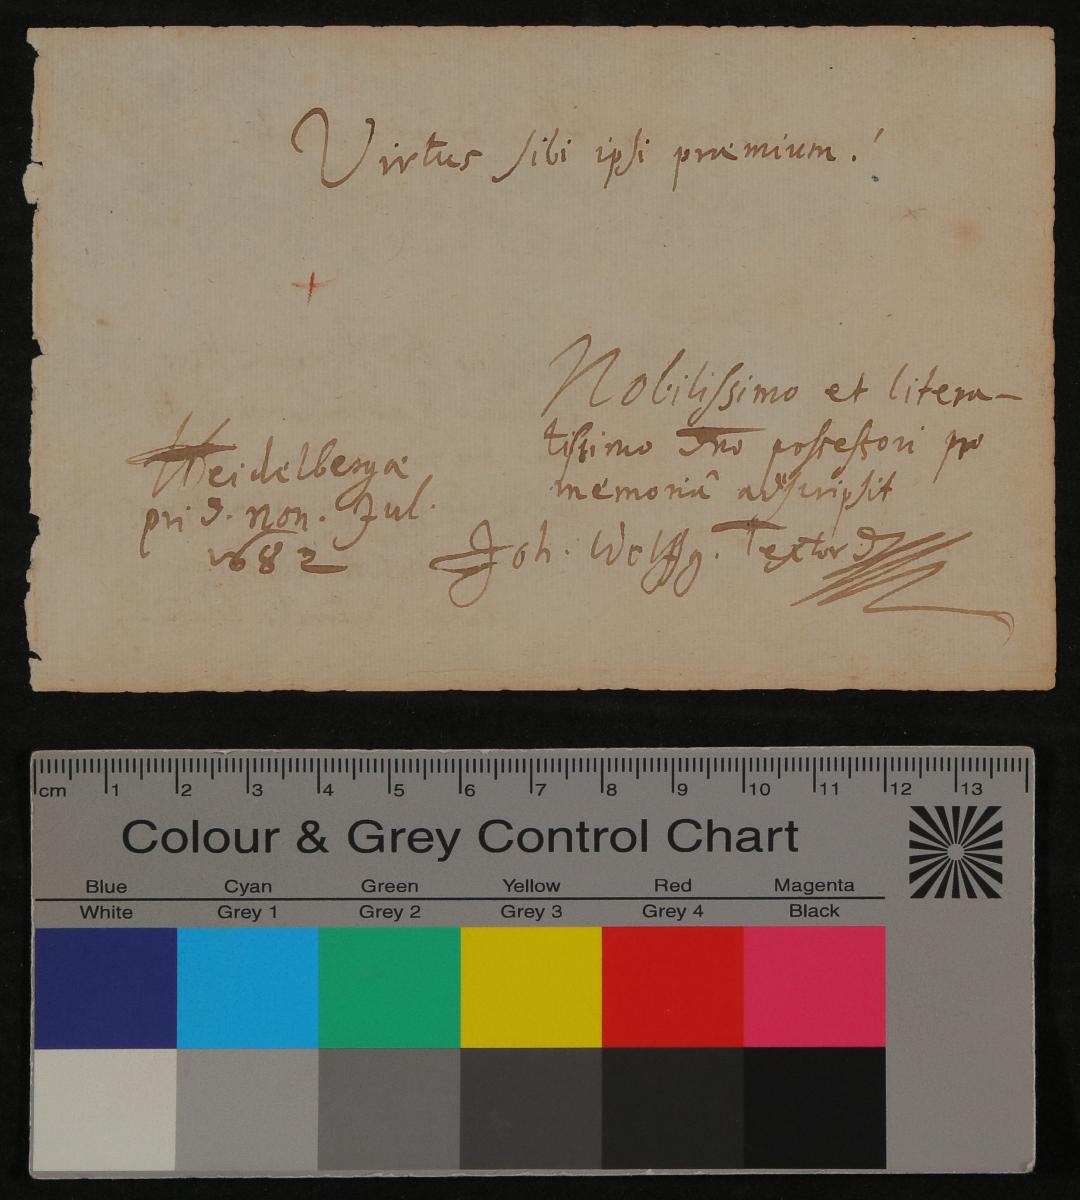 Virtus sibi ipsi præmium!
Nobilissimo et litera-
tissimo Dno possessori pro
memoriâ adscripsit
Heidelbergæ
prid. non. Jul.
1682
Joh. Wolffg. Textor D
cm 1 2 3 4 5 6 7 8 9 10 11 12 13
Colour & Grey Control Chart
Blue Cyan Green Yellow Red Magenta
White Grey 1 Grey 2 Grey 3 Grey 4 Black